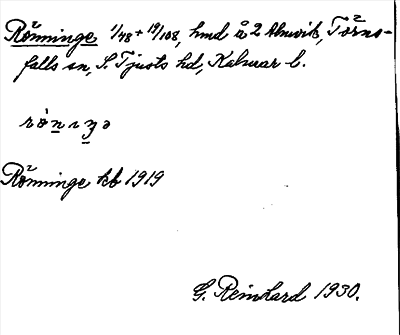 Rönninge 1/48 + 19/108, hmd å 2 Almvik, Törns-
falls sn, S. Tjusts hd, Kalmar l.
Rönninge kb 1919
G. Reinhard 1930.